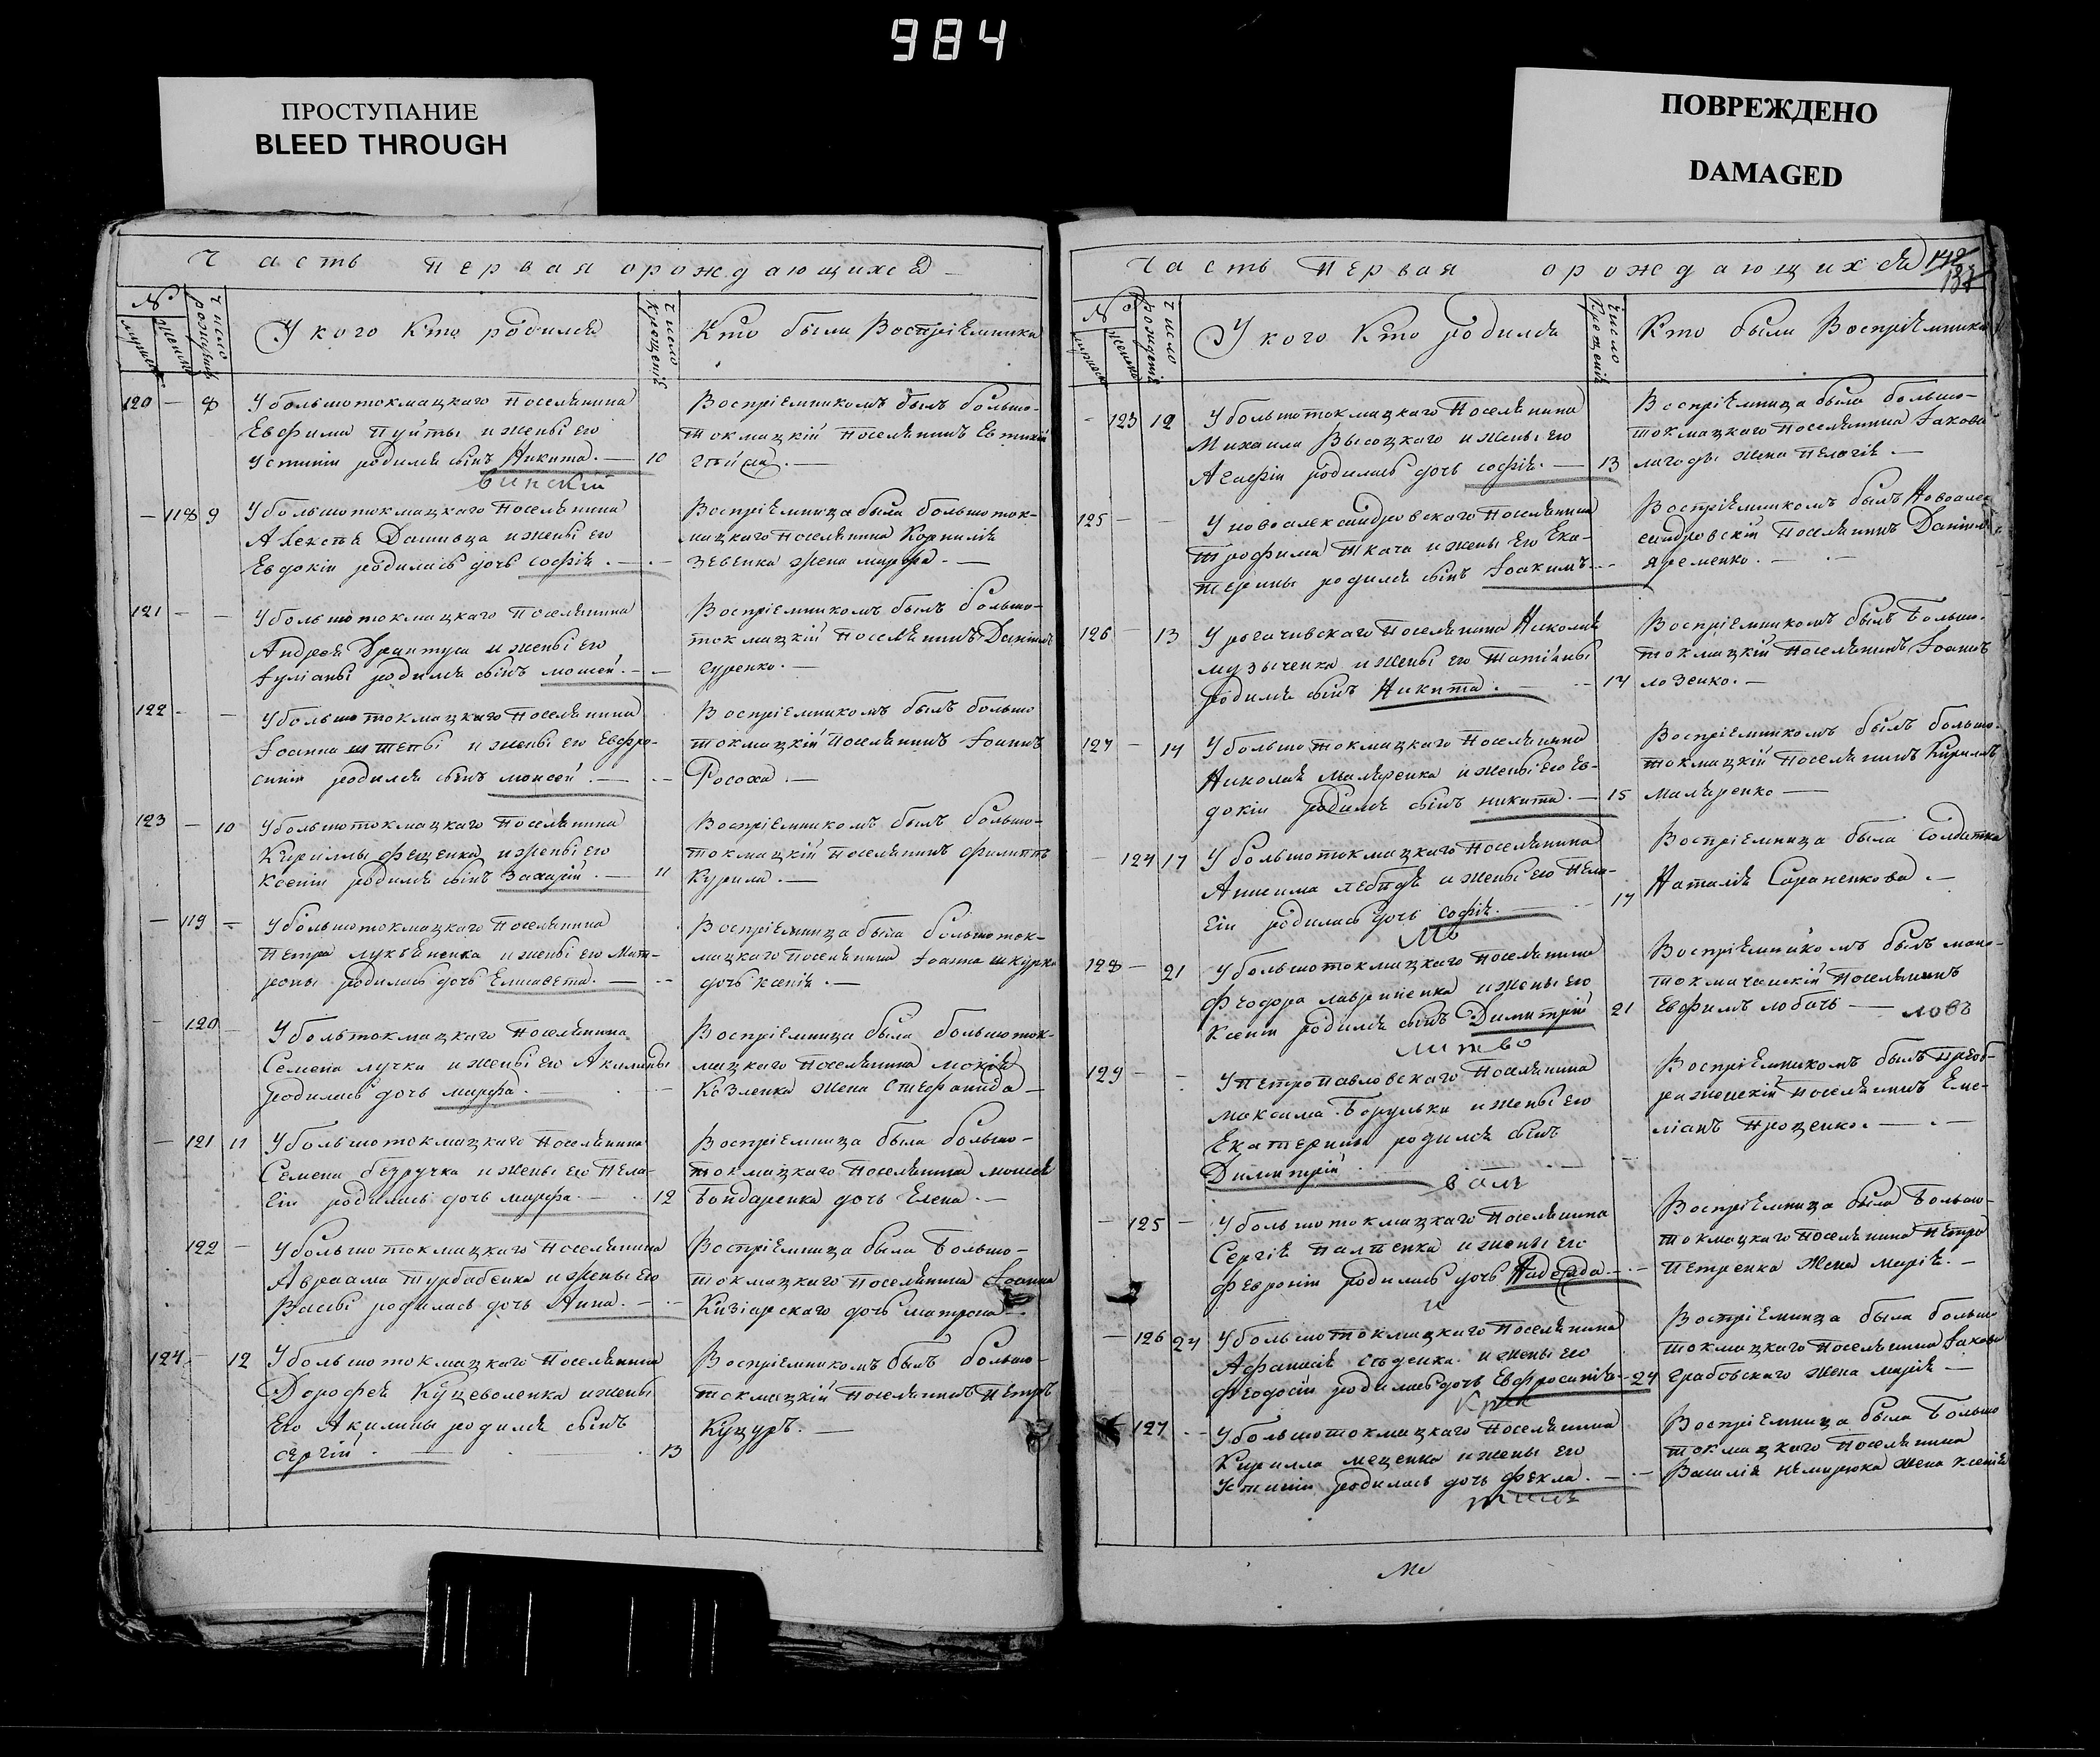 984
ПРОСТУПАНИЕ
BLEED THROUGH
ПОВРЕЖДЕНО
DAMAGED
Часть Первая орождающихся
№
У кого Кто родился
Число Крещенія
Кто были Воспріемники
120 — 8 У большотокмацкаго Поселянина
Евфима Пуйты и жены его
Устиніи родился сынъ Никита. — 10
Воспріемникомъ былъ больше-
токмацкій Поселянинъ Евтихій
— 118 9 У большотокмацкаго Поселянина
Алексѣя и жены его
Евдокіи родилась дочь софія. —
Воспріемница была большоток-
мацкаго Поселянина Корнилія
жена марфа. —
121 — — У большотокмацкаго Поселянина
Андрея и жены его
Іуліаны родился сынъ моисей. —
Воспріемникомъ былъ больше-
токмацкій Поселянинъ Даніилъ
гуренко. —
122 — — У большотокмацкаго Поселянина
Іоанна штепы и жены его Евфро-
синіи родился сынъ моисей. —
Воспріемникомъ былъ больше
токмацкій Поселянинъ Іоаннъ
Росоха. —
123 — 10 У большотокмацкаго Поселянина
Кириллы Фещенка и жены его
Ксеніи родился сынъ Захарій. — 11
Воспріемникомъ былъ больше-
токмацкій Поселянинъ Филиппъ
Курило. —
— 119 — У большотокмацкаго Поселянина
Петра лукьяненка и жены его Мат-
роны родилась дочь Елисавета. —
Воспріемница была большоток-
мацкаго Поселянина Іоанна шкурка
дочь ксенія. —
— 120 — У больштокмацкаго Поселянина
Семена лучка и жены его Акилины
родилась дочь марфа. —
Воспріемница была большоток-
мацкаго Поселянина мокія
Козленка жена Стефанида —
— 121 11 У большотокмацкаго Поселянина
Семена безручка и жены его Пела-
гіи родилась дочь марфа. — 12
Воспріемница была больше-
токмацкаго Поселянина моисея
Бондаренка дочь Елена. —
122 — У большотокмацкаго Поселянина
Авраама Турбабенка и жены его
Вассы родилась дочь Анна. —
Воспріемница была Больше-
токмацкаго Поселянина Іоанна
Кизіарскаго дочь матрона —
124 — 12 У большотокмацкаго Поселянина
Дорофея Куцеволенка и жены
Его Акилины родился сынъ
сергій. — 13
Воспріемникомъ былъ больше-
токмацкій Поселянинъ Петръ
Куцуръ. —
Часть Первая орождающихся
№
У кого Кто родился
Число Крещенія
Кто были Воспріемники
— 123 12 У большотокмацкаго Поселянина
Михаила Высоцкаго и жены его
Агафіи родилась дочь софія. — 13
Воспріемница была больше-
токмацкаго Поселянина Іакова
лагоды жена Пелагія. —
125 — — У новоалександровскаго Поселянина
Трофима Ткача и жены его Ека-
терины родился сынъ Іоакимъ —
Воспріемникомъ былъ Новоалек-
сандровскій Поселянинъ Даніилъ
Яременко. —
126 — 13 У рогачивскаго Поселянина Николая
музыченка и жены его Татіаны
родился сынъ Никита. — 14
Воспріемникомъ былъ Больше-
токмацкій Поселянинъ Іоаннъ
лозенко. —
127 — 14 У большотокмацкаго Поселянина
Николая маляренка и жены его Ев-
докіи родился сынъ никита. — 15
Воспріемникомъ былъ больше-
токмацкій Поселянинъ Кирилъ
Маляренко —
— 124 17 У большотокмацкаго Поселянина
Анисима и жены его Пела-
гіи родилась дочь софія. — 17
Воспріемница была Солдатка
Наталія Сараненкова. —
128 — 21 У большотокмацкаго Поселянина
Феодора лавриненка и жены его
Ксеніи родился сынъ Димитрій 21
Воспріемникомъ былъ мало-
токмачанскій Поселянинъ
Евфимъ лобачь —
129 — — У Петропавловскаго Поселянина
максима Борулька и жены его
Екатерины родился сынъ
Димитрій.
Воспріемникомъ былъ преоб-
раженскій Поселянинъ Еме-
ліанъ Проценко. —
— 125 — У большотокмацкаго Поселянина
Сергія Палтенка и жены его
Февроніи родилась дочь Надежда —
Воспріемница была Больше-
токмацкаго Поселянина Петра
Петренка жена марія. —
— 126 24 У большотокмацкаго Поселянина
Афанасія и жены его
Феодосіи родилась дочь Евфросинія — 24
Воспріемница была больше
токмацкаго Поселянина Іакова
Грабовскаго жена марія —
127 — У большотокмацкаго Поселянина
Кирилла меценка и жены его
Устиніи родилась дочь Фекла. —
Воспріемница была Больше
токмацкаго Поселянина
Василія немирюка жена ксенія